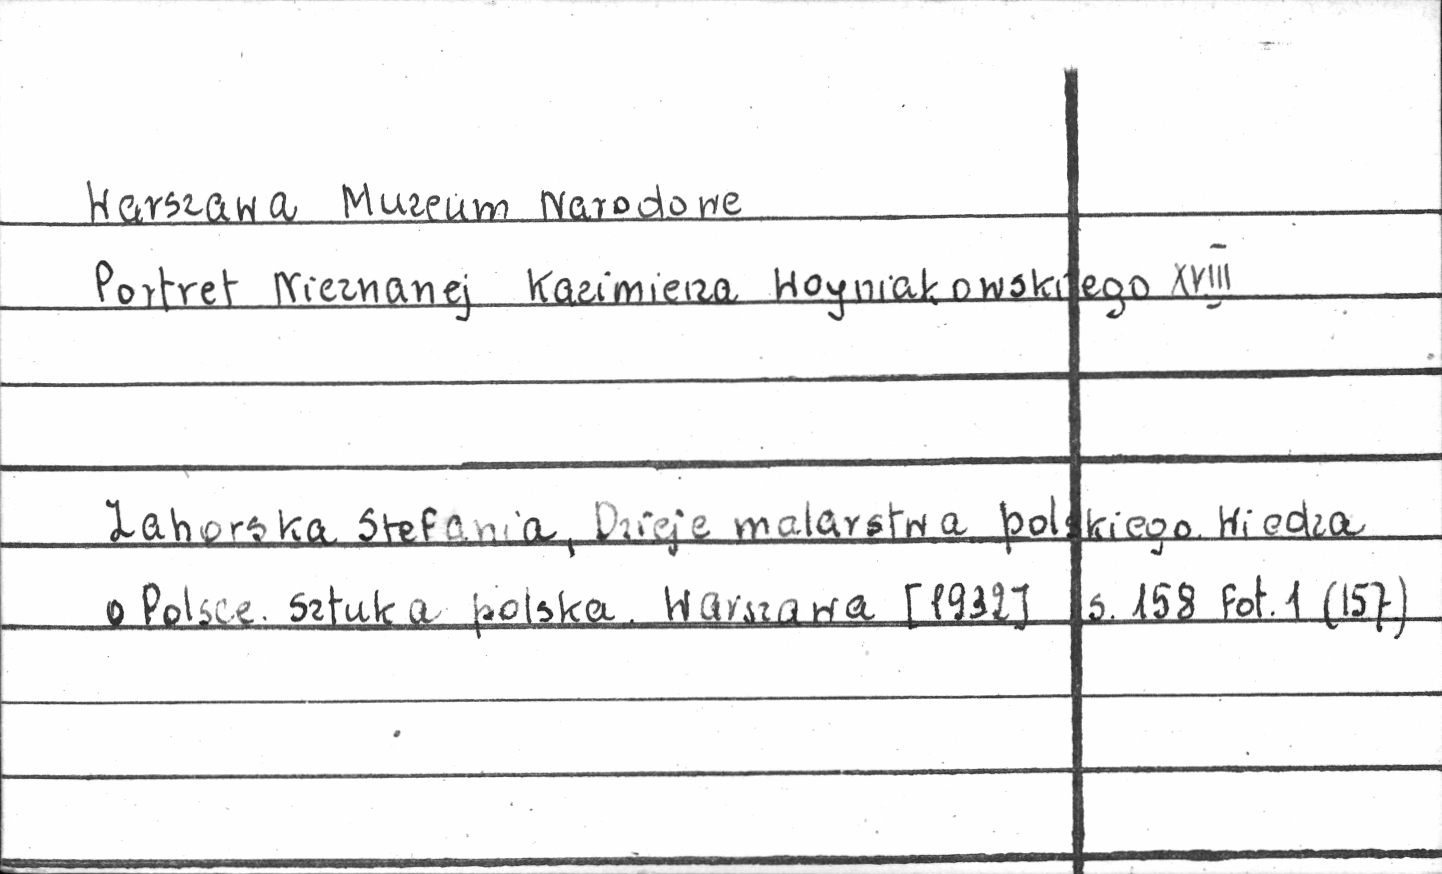 Warszawa Muzeum Narodowe
Portret Nieznanej Kazimierza Woyniakowskiego XVIII
Zahorska Stefania, Dzieje malarstwa polskiego. Wiedza
o Polsce. Sztuka polska. Warszawa [1932] s. 158 Fot. 1 (157)